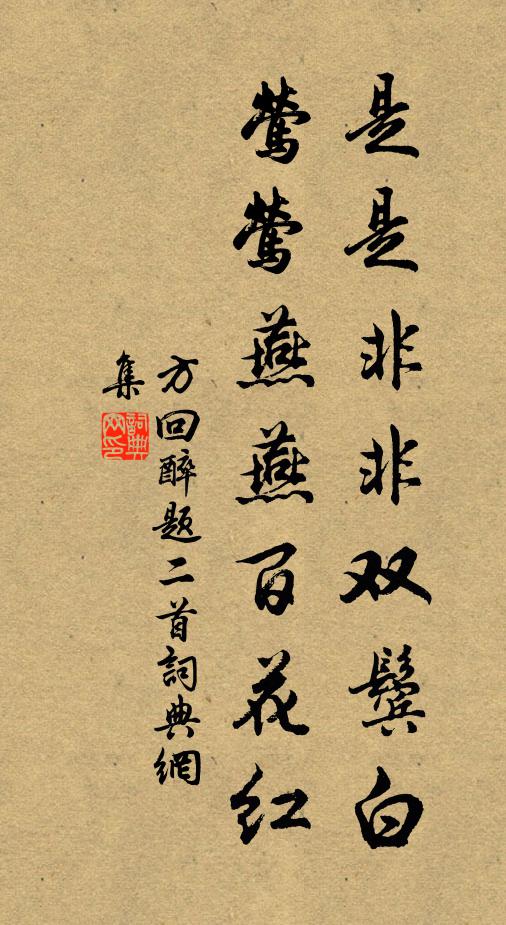 是是非非双鬓白
莺莺燕燕百花红
方回醉题二首詞典網
集
詞典网印